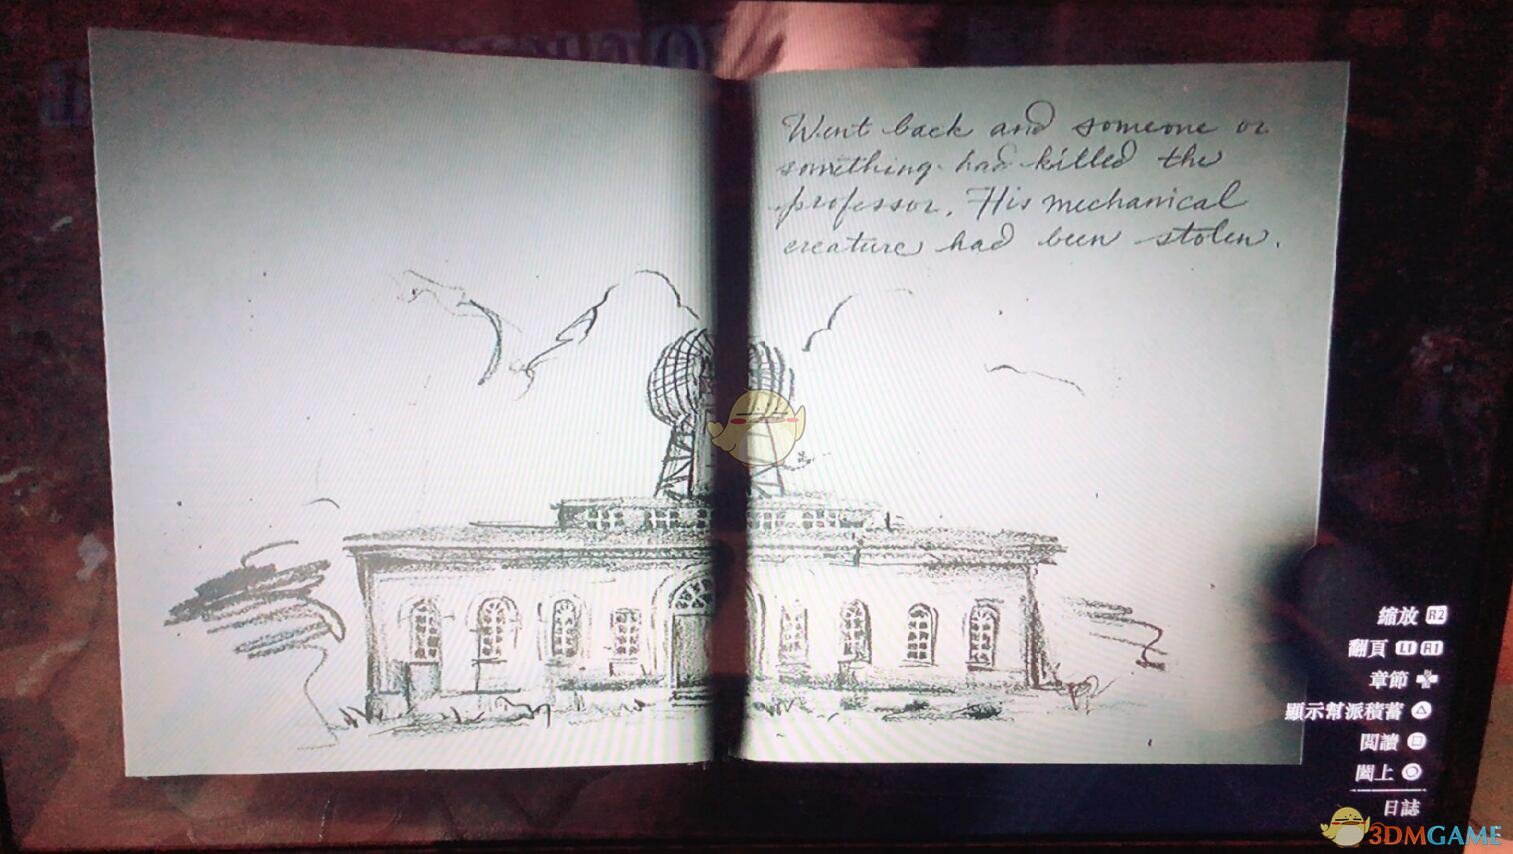 Went back and someone or
something had killed the
professor. His mechanical
creature had been stolen.
縮放 R2
翻頁 L1 R1
章節
顯示幫派積蓄
閱讀
闔上
日誌
3DMGAME